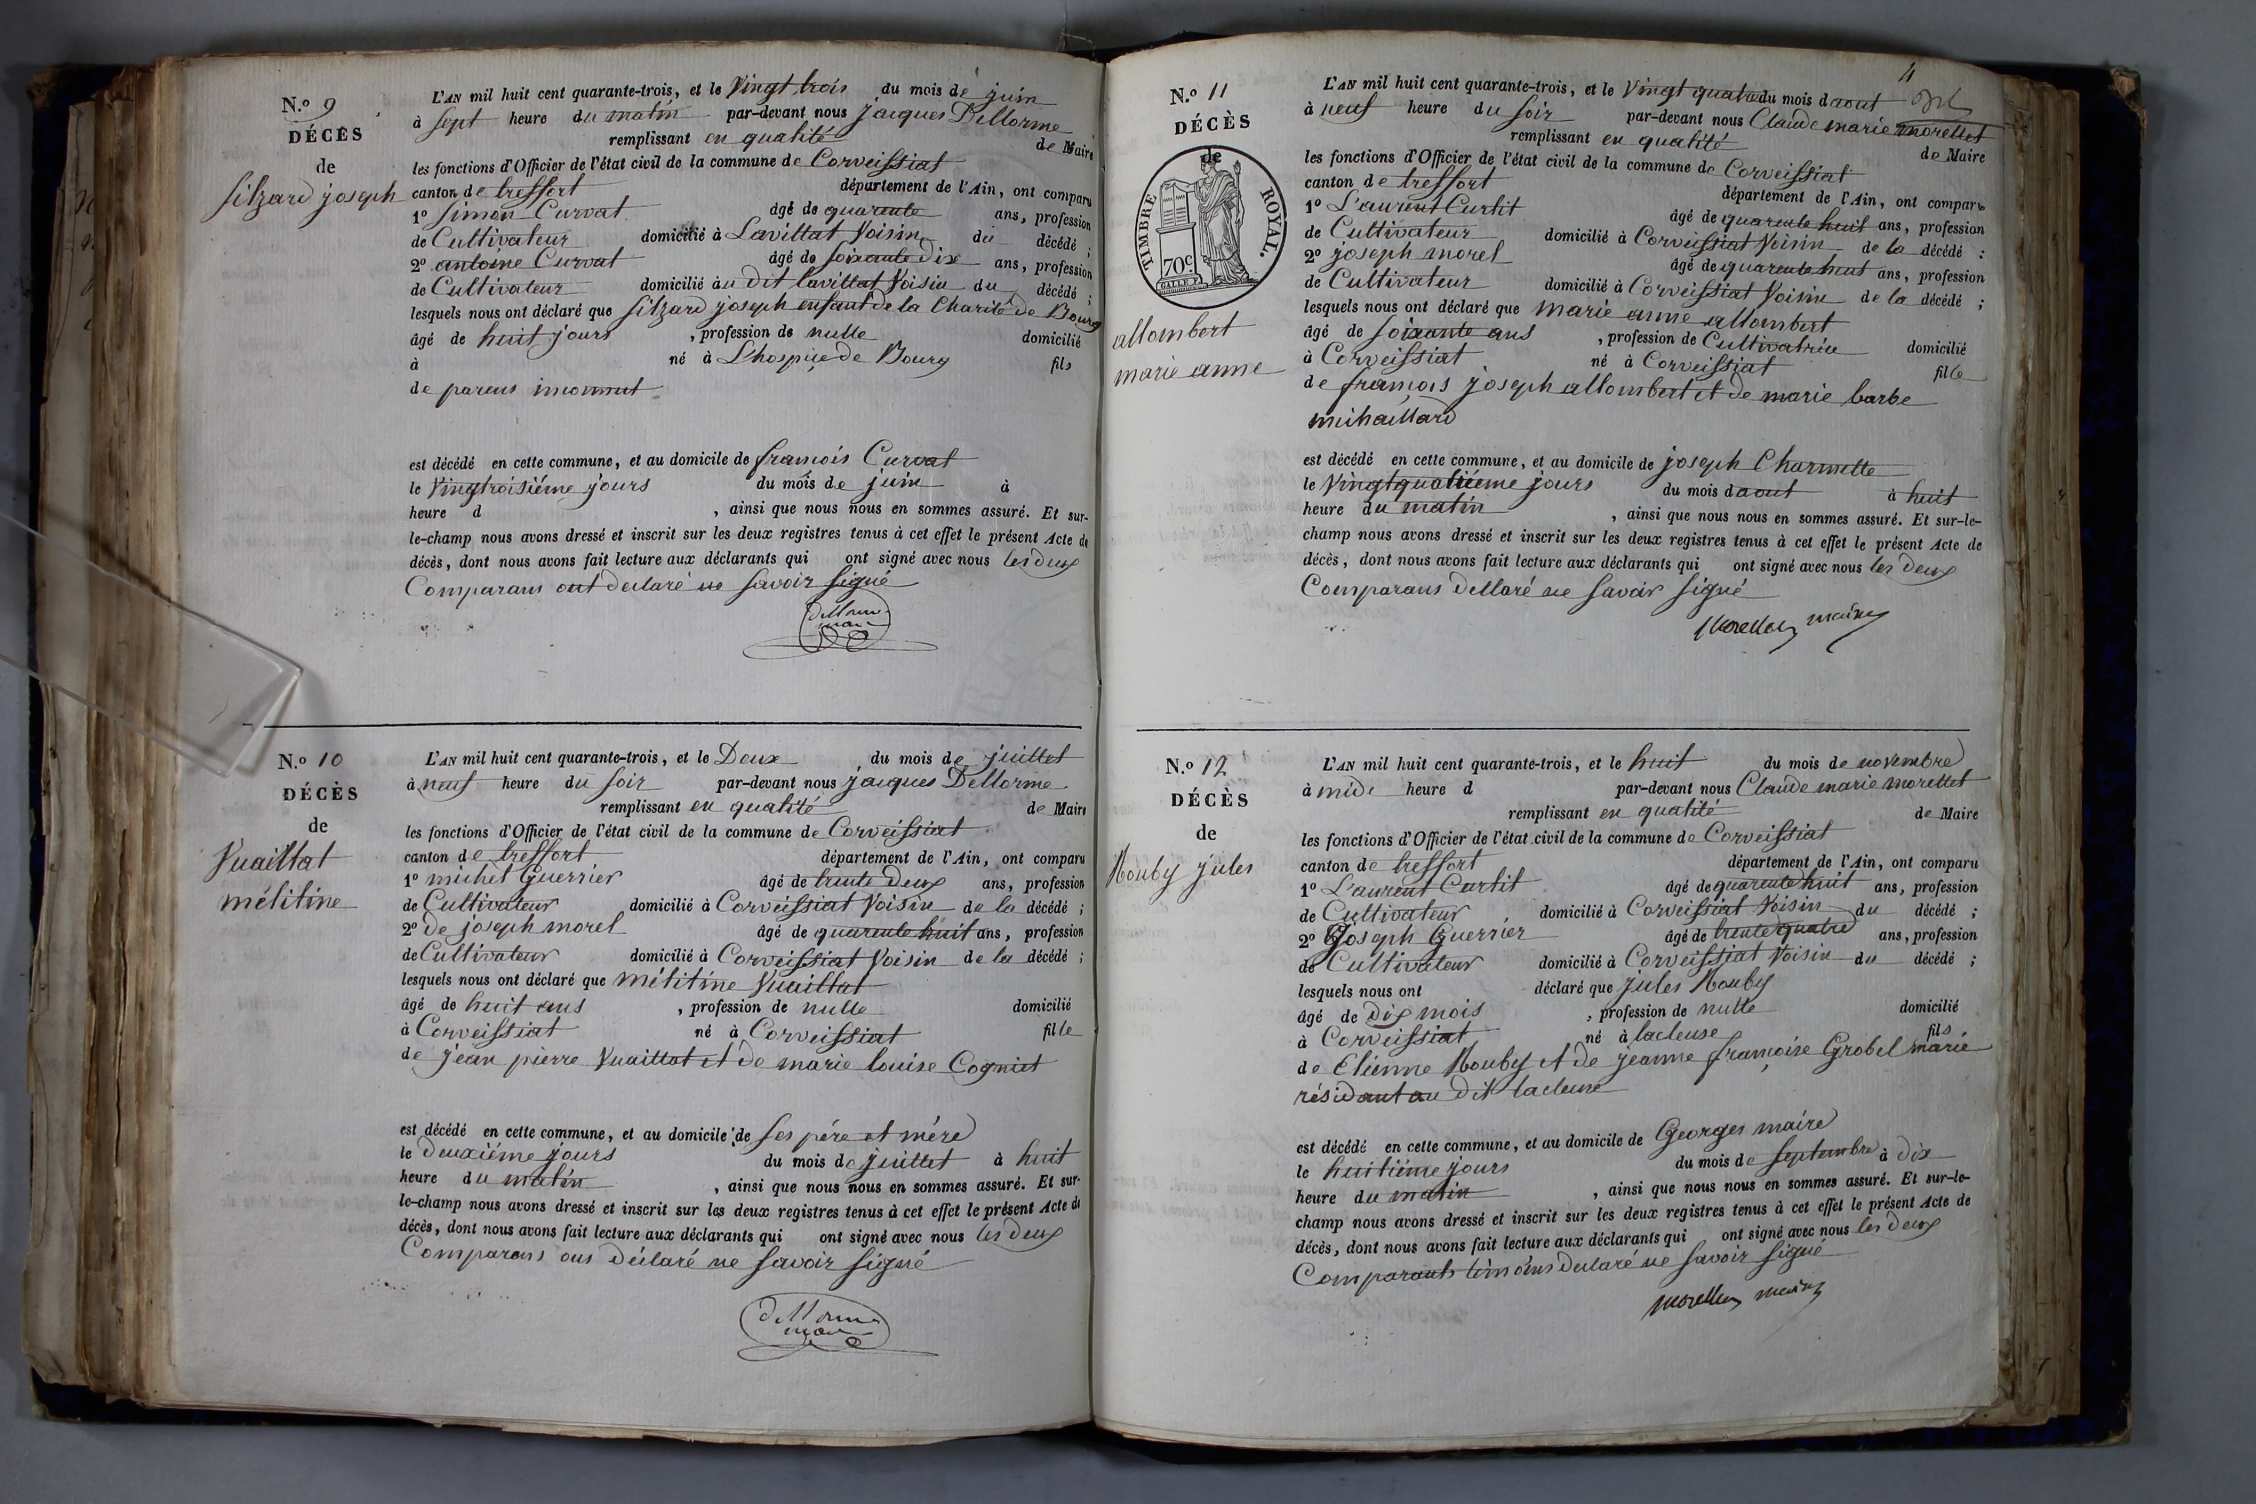 N.o 9
DÉCÈS
de
Silzard joseph
L'AN mil huit cent quarante-trois, et le Vingt trois du mois de juin
à sept heure du matin par-devant nous jacques Dellorme
remplissant en qualité de Maire
les fonctions d'Officier de l'état civil de la commune de Corveissiat
canton de treffort département de l'Ain, ont comparu
1o Simon Curvat âgé de quarente ans, profession
de Cultivateur domicilié à Lavillat Voisin du décédé ;
2o antoine Curvat âgé de soixante dix ans, profession
de Cultivateur domicilié au dit lavillat Voisin du décédé ;
lesquels nous ont déclaré que Silzard joseph enfant de la Charité de Bourg
âgé de huit jours , profession de nulle domicilié
à né à L'hospice de Bourg fils
de parens inconnut
est décédé en cette commune, et au domicile de francois Curvat
le Vingtroisiéme jours du mois de juin à
heure d , ainsi que nous nous en sommes assuré. Et sur-
le-champ nous avons dressé et inscrit sur les deux registres tenus à cet effet le présent Acte de
décès, dont nous avons fait lecture aux déclarants qui ont signé avec nous les deux
Comparans ont declaré ne savoir signé
Dellorme
maire
N.o 10
DÉCÈS
de
Vuaillat
mélitine
L'AN mil huit cent quarante-trois, et le Deux du mois de juillet
à neuf heure du soir par-devant nous jacques Dellorme
remplissant en qualité de Maire
les fonctions d'Officier de l'état civil de la commune de Corveissiat
canton de treffort département de l'Ain, ont comparu
1o michel Guerrier âgé de trente deux ans, profession
de Cultivateur domicilié à Corveissiat Voisin de la décédé ;
2o de joseph morel âgé de quarente huit ans, profession
de Cultivateur domicilié à Corveissiat Voisin de la décédé ;
lesquels nous ont déclaré que mélitine Vuaillat
âgé de huit ans , profession de nulle domicilié
à Corveissiat né à Corveissiat fille
de jean pierre Vuaillat et de marie louise Cogniet
est décédé en cette commune, et au domicile de ses pére et mére
le deuxiéme jours du mois de juillet à huit
heure du matin , ainsi que nous nous en sommes assuré. Et sur-
le-champ nous avons dressé et inscrit sur les deux registres tenus à cet effet le présent Acte de
décès, dont nous avons fait lecture aux déclarants qui ont signé avec nous les deux
Comparans ons déclaré ne savoir signé
Dellorme
maire
4
N.o 11
DÉCÈS
de
TIMBRE ROYAL.
70c
allombert
marie anne
L'AN mil huit cent quarante-trois, et le Vingt quatre du mois daout
à neuf heure du soir par-devant nous Claude marie morellet
remplissant en qualité de Maire
les fonctions d'Officier de l'état civil de la commune de Corveissiat
canton de treffort département de l'Ain, ont comparu
1o L'aurent Curtit âgé de quarente huit ans, profession
de Cultivateur domicilié à Corveissiat Voisin de la décédé ;
2o joseph morel âgé de quarente huit ans, profession
de Cultivateur domicilié à Corveissiat Voisin de la décédé ;
lesquels nous ont déclaré que marie anne allombert
âgé de soixante ans , profession de Cultivatrice domicilié
à Corveissiat né à Corveissiat fille
de françois joseph allombert et de marie barbe
michaillard
est décédé en cette commune, et au domicile de joseph Charmette
le Vingt quatriéme jours du mois daout à huit
heure du matin , ainsi que nous nous en sommes assuré. Et sur-le-
champ nous avons dressé et inscrit sur les deux registres tenus à cet effet le présent Acte de
décès, dont nous avons fait lecture aux déclarants qui ont signé avec nous les deux
Comparans dellaré ne savoir signé
Morellet maire
N.o 12
DÉCÈS
de
Mouby jules
L'AN mil huit cent quarante-trois, et le huit du mois de novembre
à midi heure d par-devant nous Claude marie morellet
remplissant en qualité de Maire
les fonctions d'Officier de l'état civil de la commune de Corveissiat
canton de treffort département de l'Ain, ont comparu
1o L'aurent Curtit âgé de quarente huit ans, profession
de Cultivateur domicilié à Corveissiat Voisin du décédé ;
2o joseph Guerrier âgé de trente quatre ans, profession
de Cultivateur domicilié à Corveissiat Voisin du décédé ;
lesquels nous ont déclaré que jules Mouby
âgé de dix mois , profession de nulle domicilié
à Corveissiat né à lacleuse fils
de Etienne Mouby et de jeanne françoise Grobel marié
résidant au dit lacleuse
est décédé en cette commune, et au domicile de Georges maire
le huitiéme jours du mois de septembre à dix
heure du matin , ainsi que nous nous en sommes assuré. Et sur-le-
champ nous avons dressé et inscrit sur les deux registres tenus à cet effet le présent Acte de
décès, dont nous avons fait lecture aux déclarants qui ont signé avec nous les deux
Comparants témoins declaré ne savoir signé
morellet maire